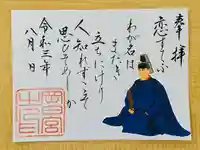 奉拝
恋すてふ
わが名は
まだき
立ちにけり
人知れずこそ
思ひそめしか
令和三年
八月 日